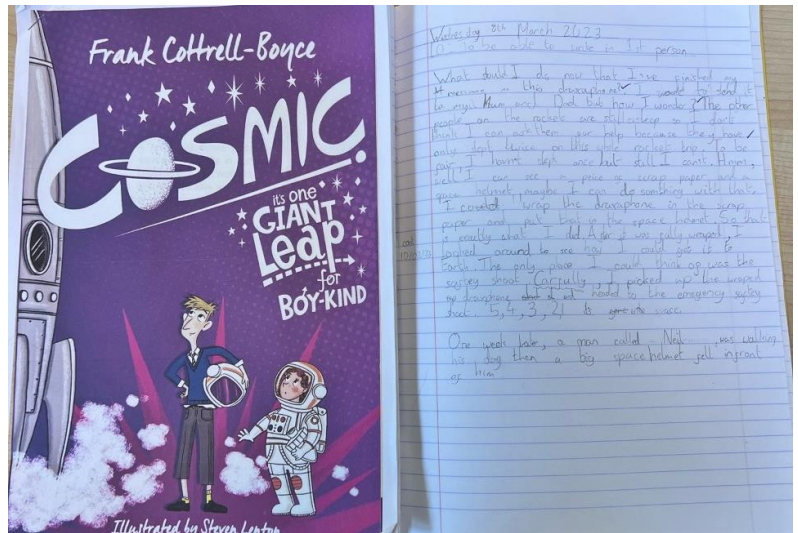 Frank Cottrell-Boyce
COSMIC
it's one
GIANT
Leap
for
BOY-KIND
Illustrated by Steven Lenton
Wednesday 8th March 2023
L.O. To be able to write in 1st person
What should I do now that I've finished my
in this dramaphone? I want to send it
to my Mum and Dad but how I wonder? The other
people on the rocket are still asleep so I don't
think I can ask them for help because they have
only slept twice on this whole rocket trip. To be
fair I havnt slept once but still I cant. Hmm,
well! I can see a peice of scrap paper and a
space helmet, maybe I can do somthing with that.
I could wrap the dramaphone in the scrap
paper and put that in the space helmet. So that
is exactly what I did. After it was fully wraped, I
looked around to see how I could get it to
Earth. The only place I could think of was the
saftey shoot. Carfully, I picked up the wraped
up dramaphone and headed to the emergency saftey
shoot. 5, 4, 3, 2, 1
One week later, a man called Neil was walking
his dog then a big space helmet fell infront
of him